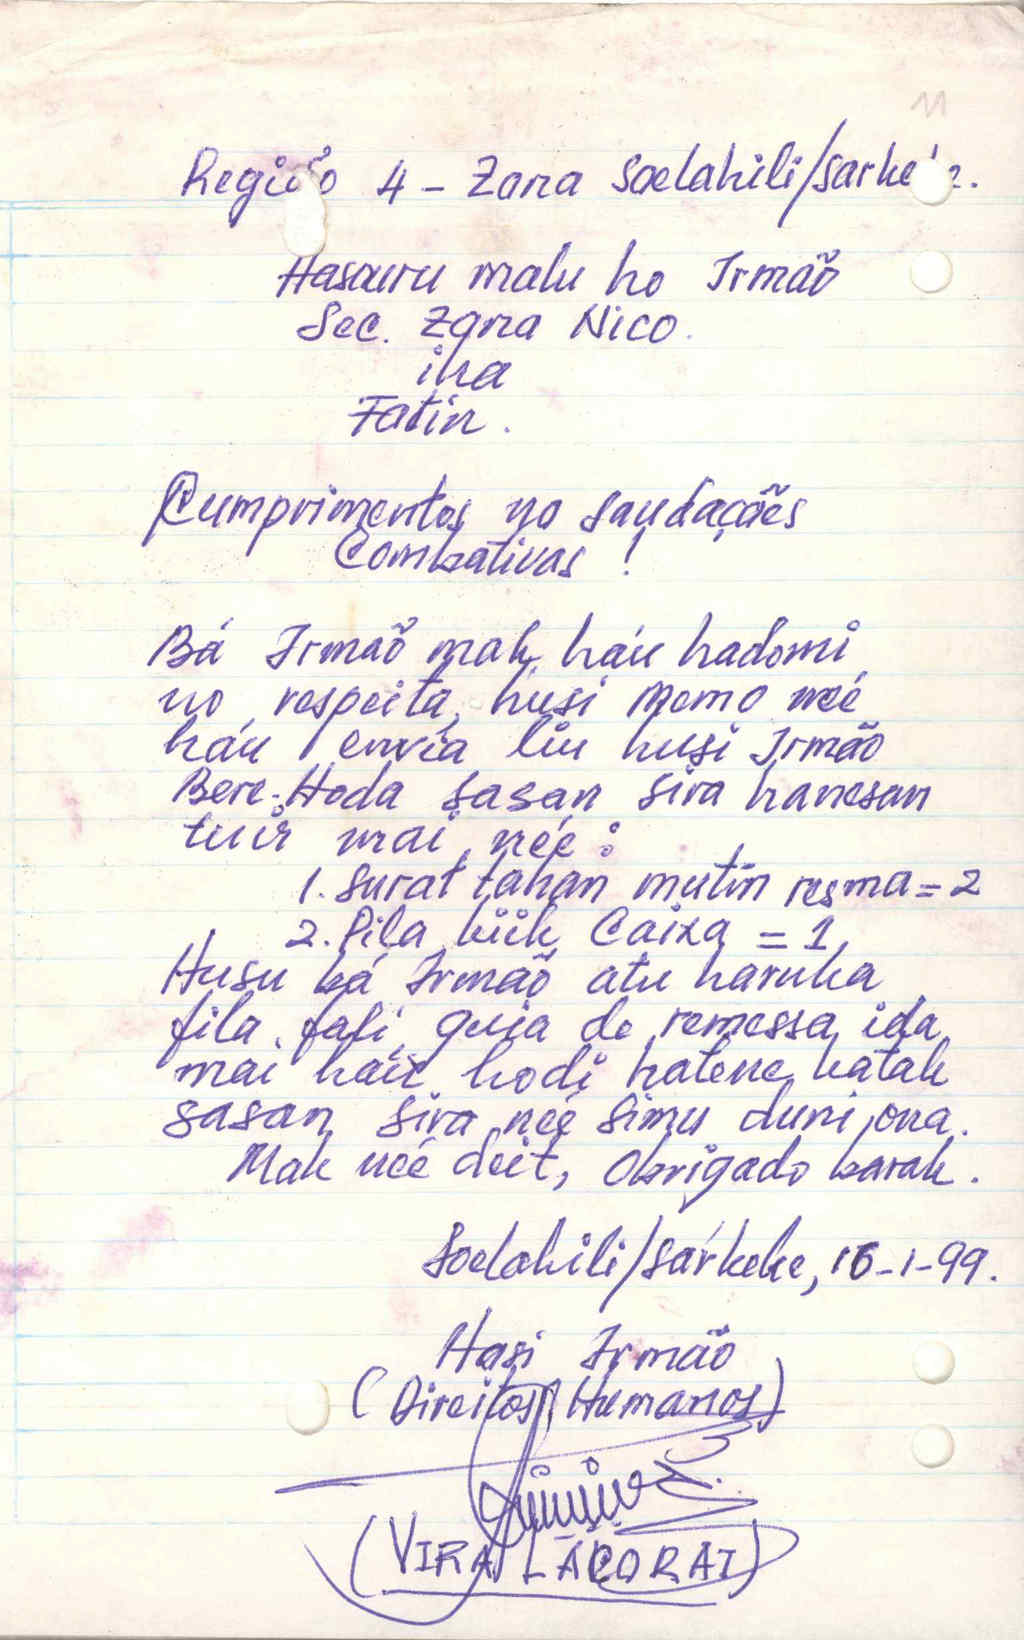 11
Região 4 - Zona Soelahili/Sarke
Hasouru malu ho Irmão
Sec. Zona Nico.
iha
Fatin.
Cumprimentos no saudações
Combativas !
Bá Irmão mak háu hadomi
no respeita, husi memo neé
háu envia liu husi Irmão
Bere-Hoda sasan sira hanesan
tuir mai neé :
1. Surat tahan mutin resma = 2
2. Pila kiik Caixa = 1
Husu bá Irmão atu haruka
fila fali guia de remessa ida
mai háu hodi hatene katak
sasan sira neé simu duni ona.
Mak neé deit, Obrigado barak.
Soelahili/Sárkeke, 16-1-99.
Hasi Irmão
(Direitos Humanos)
(VIRA LÁCORAI)